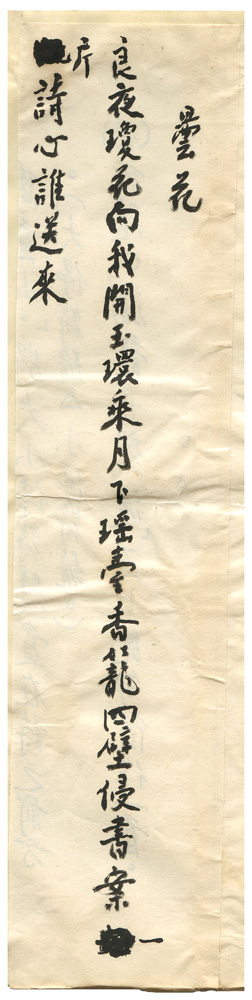 曇花
良夜瓊花向我開玉環乘月下瑤臺香籠四壁侵書案一
片詩心誰送來